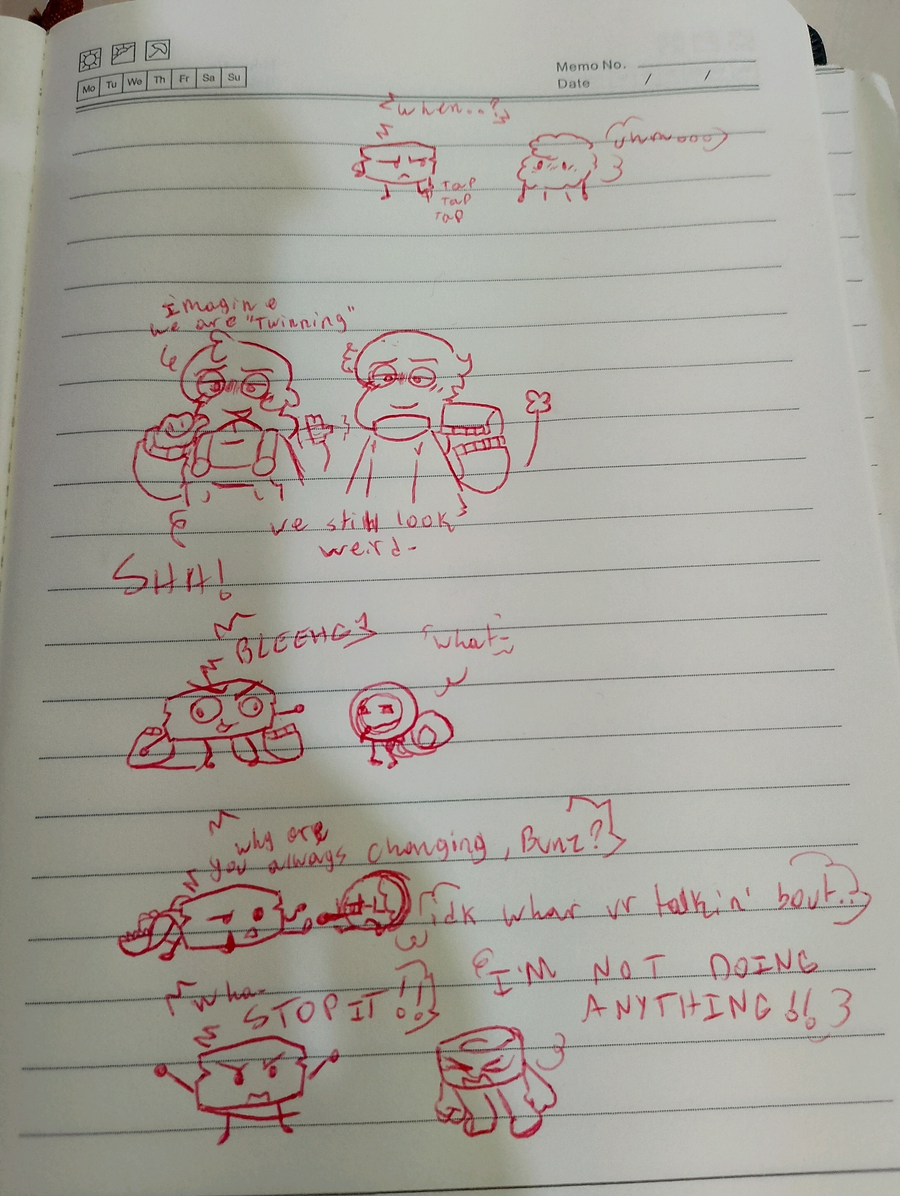 Mo Tu We Th Fr Sa Su
Memo No.
Date / /
when..?
uhmoooo
TaP
TaP
TaP
Imagine
we are "Twinning"
ve still look
weird-
SHH!
BLEEHG
"what-
why are
you always changing, Bunz?
idk whar ur talkin' bout..
Wha-
STOP IT!!
I'M NOT DOING
ANYTHING!!